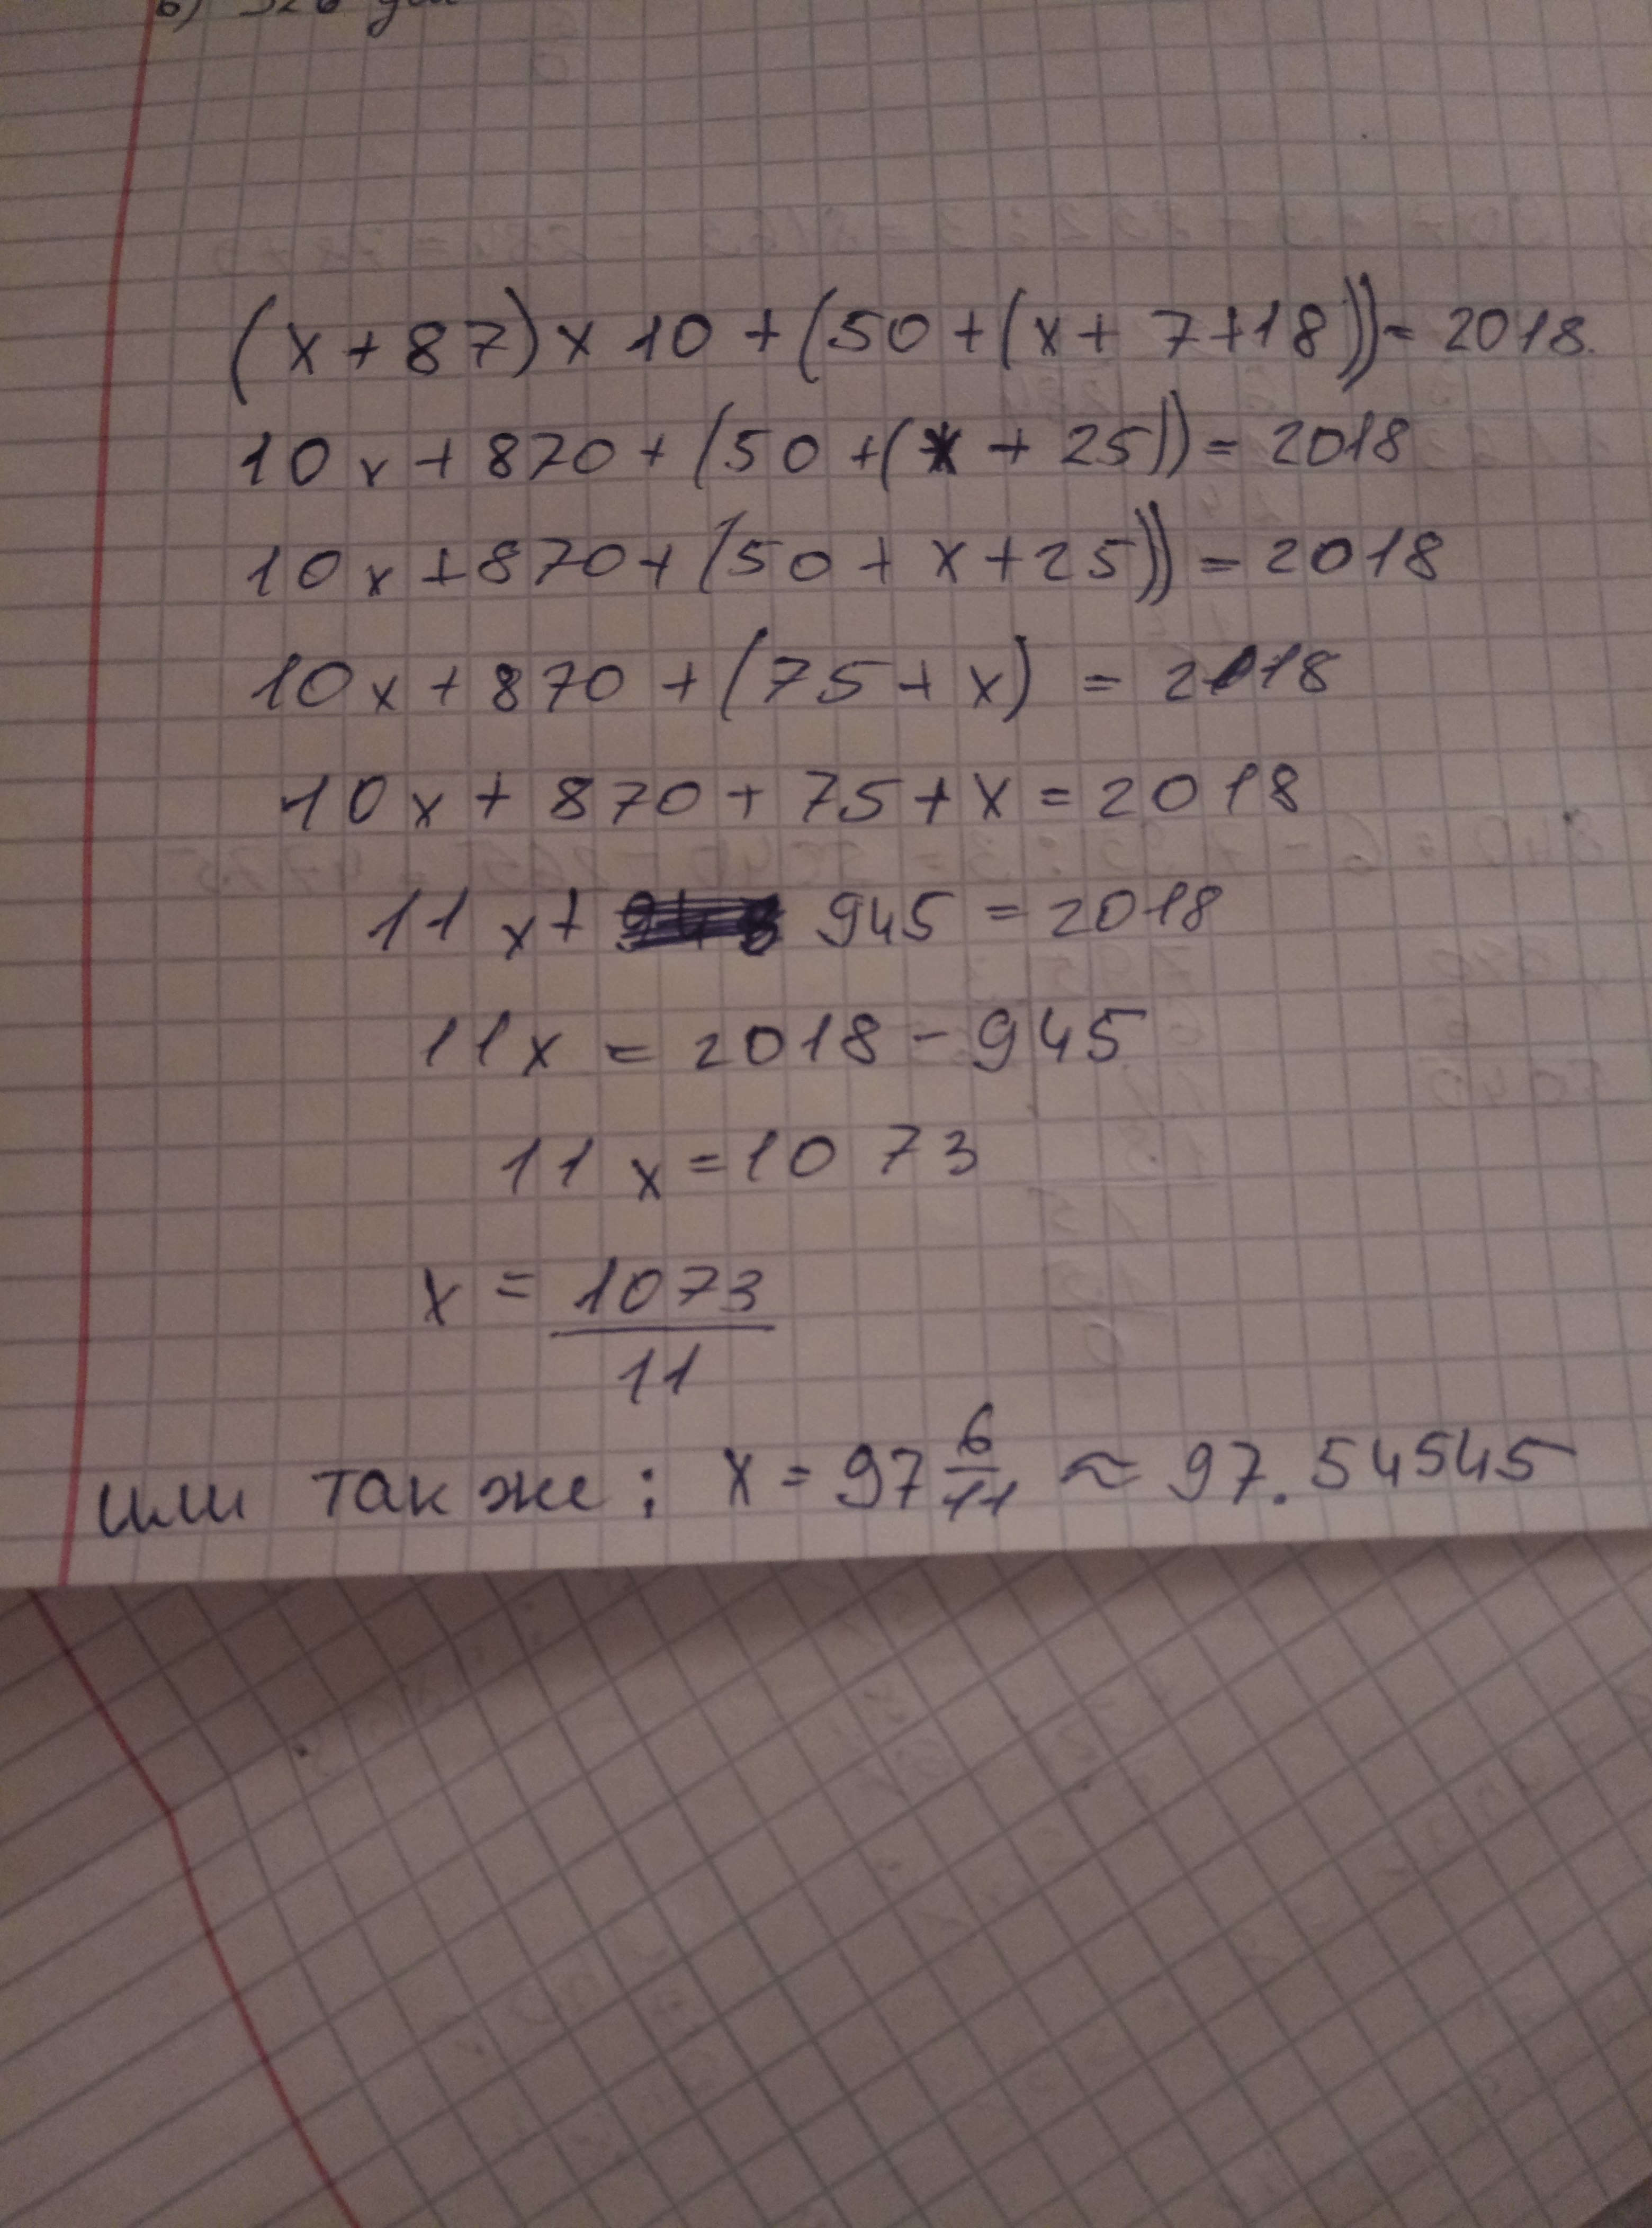 (x+87)x 10 +(50 +(x+ 7+18))= 2018.
10x +870+(50 +(x + 25))= 2018
10x +870+(50+ x+25))=2018
10x +870 +(75+ x) = 2018
10x + 870 + 75 + x = 2018
11 x+ 945 = 2018
11x = 2018 - 945
11 x =1073
x = 1073
11
или так же: x = 97 6/11 ≈ 97.54545